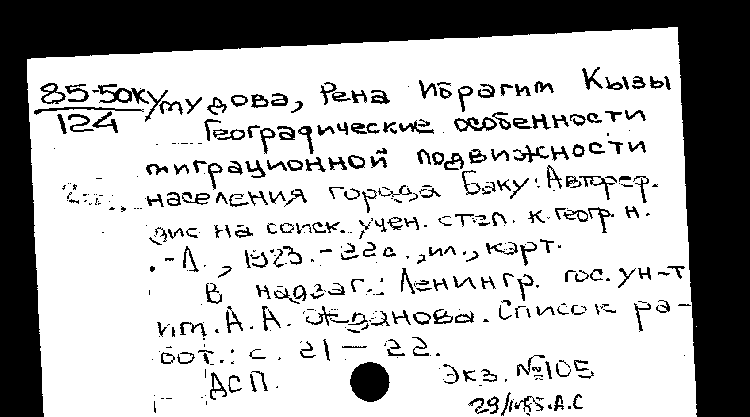 85-5оку/мудова, Рена Ибрагим Кызы
124
Географические особенности
миграционной подвижности
населения города Баку: Автореф.
дис на соиск. учен. степ. к. геогр. н.
.-Л., 1983.-22с., ил., карт.
В надзаг.: Ленингр. гос. ун-т
им. А. А. Жданова. Список ра-
бот.: с. 21-22.
ДСП. Экз. №105
29/IV85. А.С